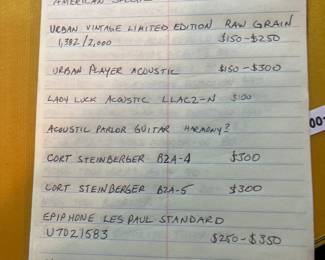 AMERICAN
URBAN VINTAGE LIMITED EDITION RAW GRAIN
1,382/2,000 $150-$250
URBAN PLAYER ACOUSTIC $150-$300
LADY LUCK ACOUSTIC LLAC2-N $100
ACOUSTIC PARLOR GUITAR HARMONY?
CORT STEINBERGER B2A-4 $300
CORT STEINBERGER B2A-5 $300
EPIPHONE LES PAUL STANDARD
U7021583 $250-$350
001